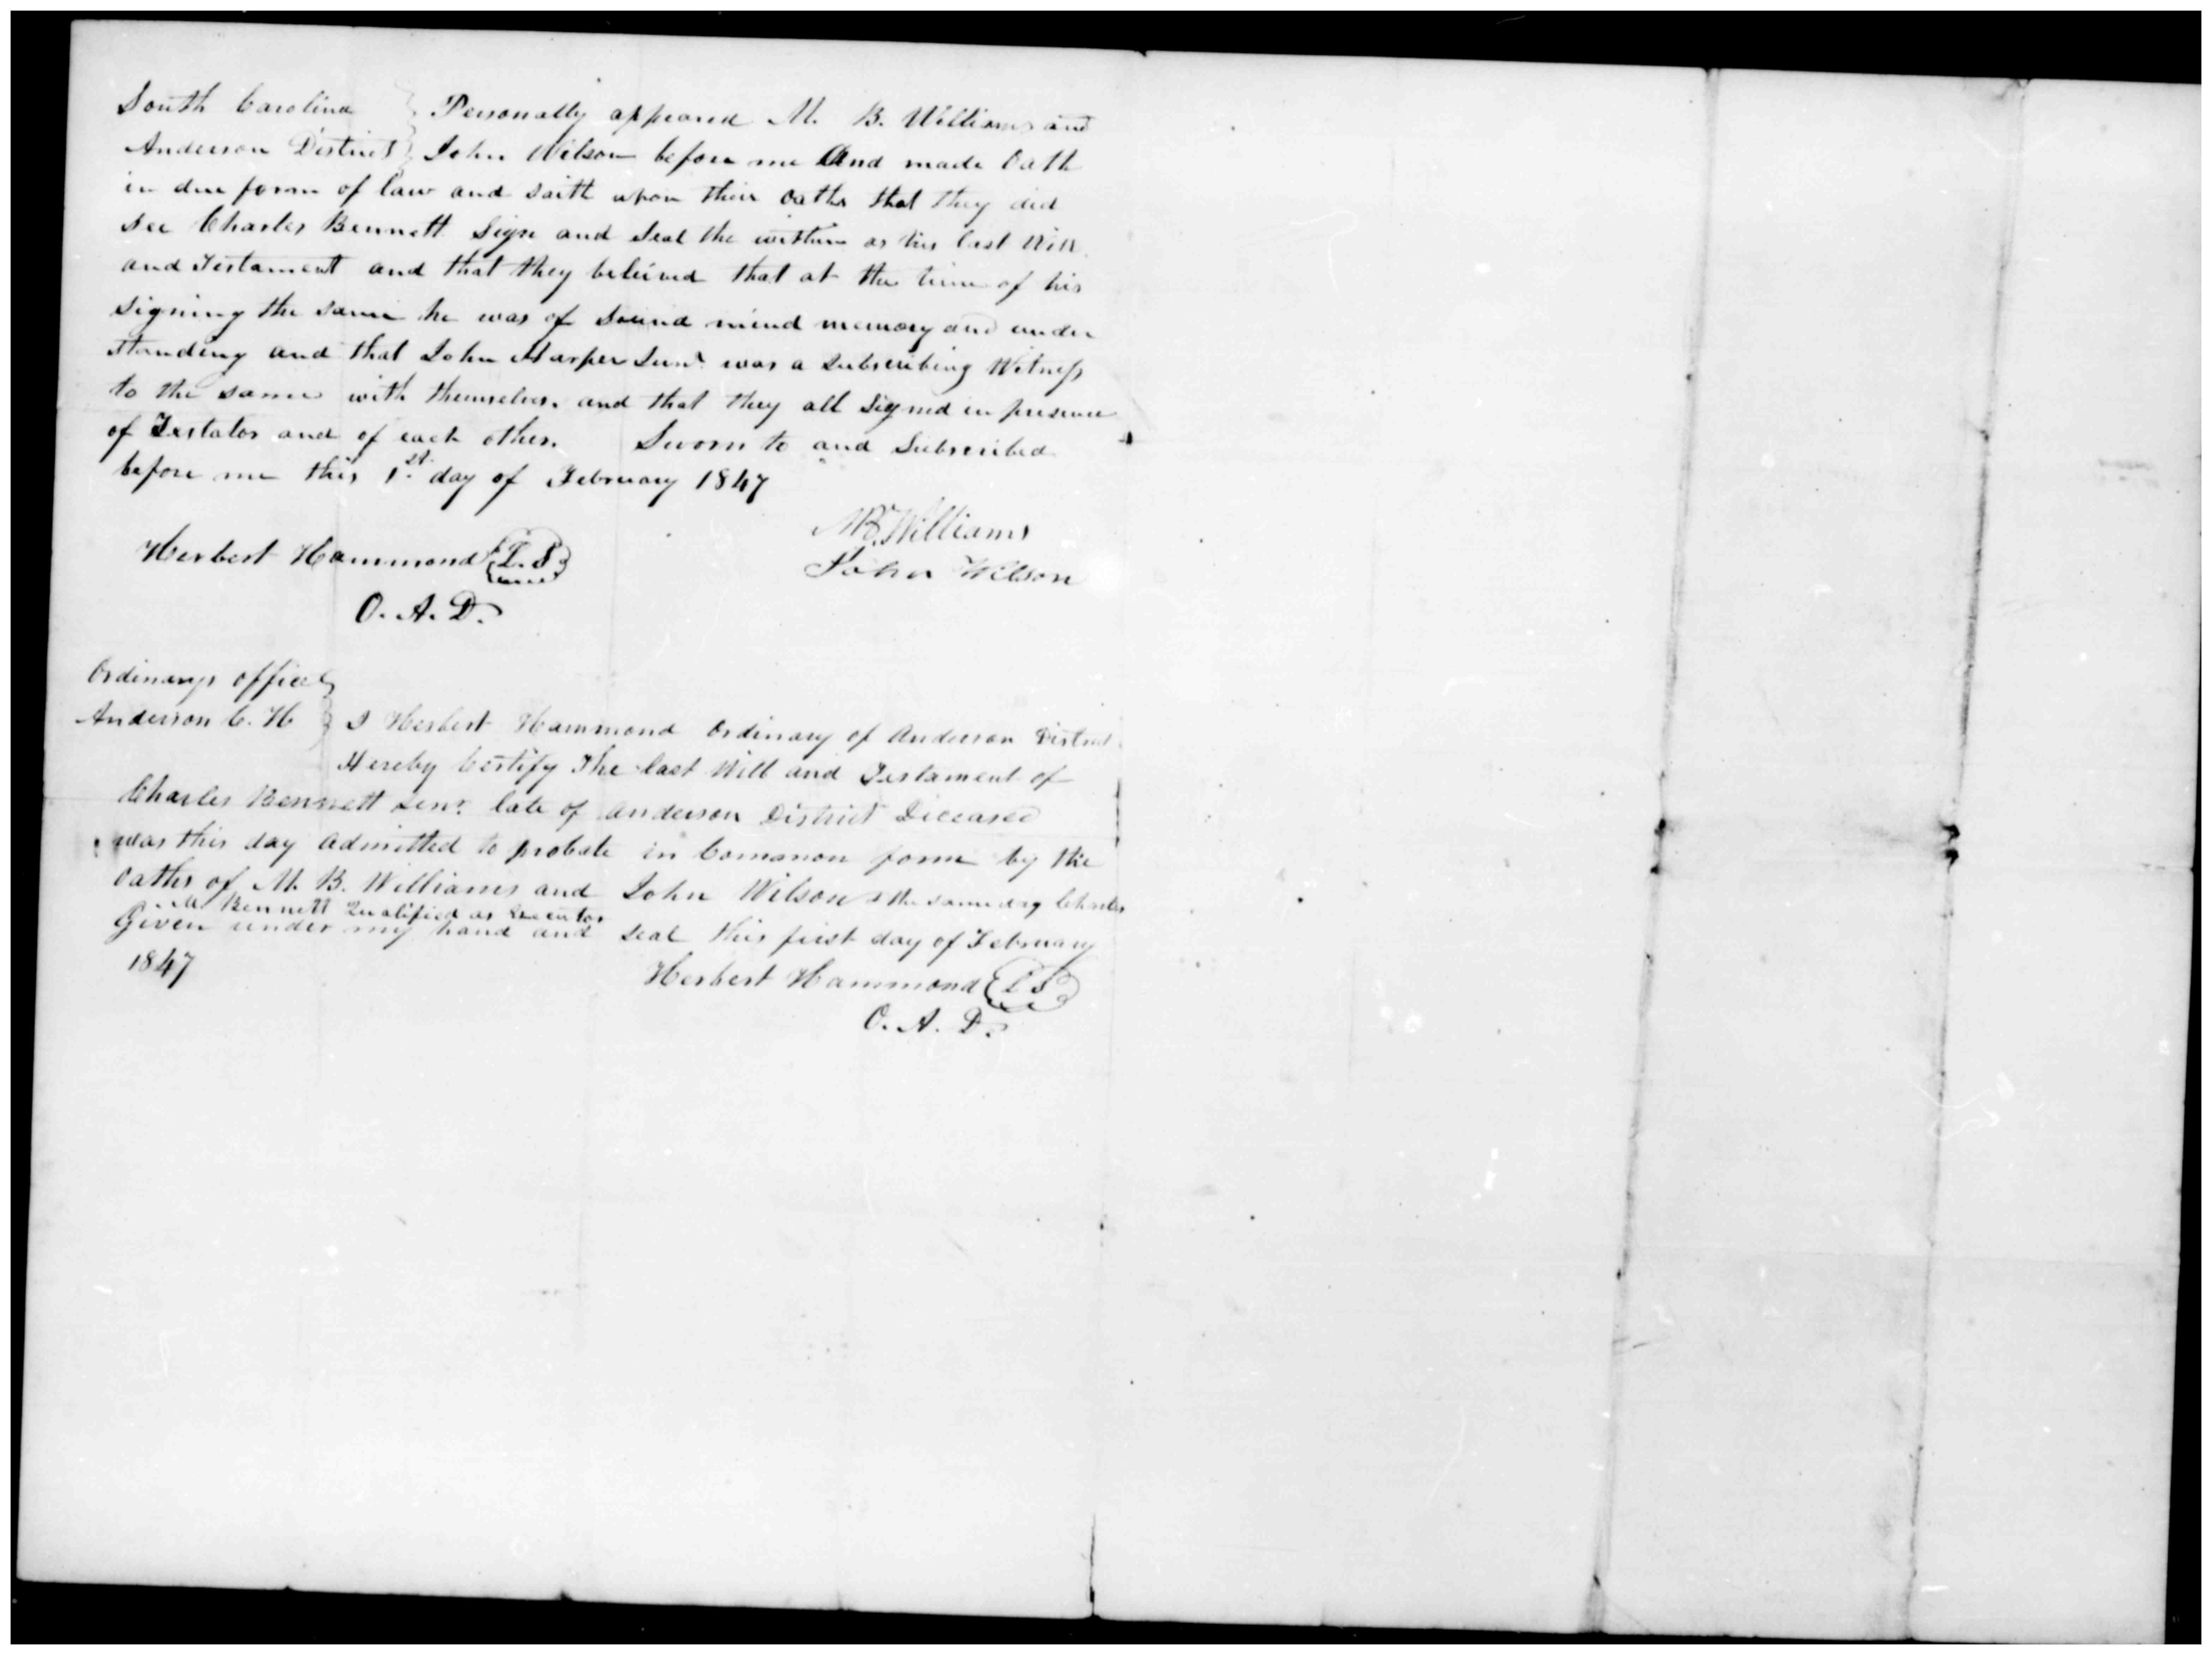 South Carolina } Personally appeared M. B. Williams and
Anderson District } John Wilson before me And made Oath
in due form of law and saith upon their oaths that they did
see Charles Bennett Sign and Seal the within as his last Will
and Testament and that they beleived that at the time of his
signing the same he was of Sound mind memory and under
standing and that John Harper Senr was a Subscribing Witness
to the same with themselves. and that they all Signed in presence
of Testator and of each other. Sworn to and Subscribed
before me this 1st day of February 1847
MB. Williams
Herbert Hammond L.S
John Wilson
O. A. D.
Ordinarys office }
Anderson C. H } I Herbert Hammond Ordinary of Anderson District
Hereby Certify The last Will and Testament of
Charles Bennett Senr. late of Anderson District Deceased
was this day Admitted to probate in Common form by the
oaths of M. B. Williams and John Wilson & the same day Charles
M Bennett Qualified as Executor
Given under my hand and seal this first day of February
1847
Herbert Hammond L S
O. A. D.